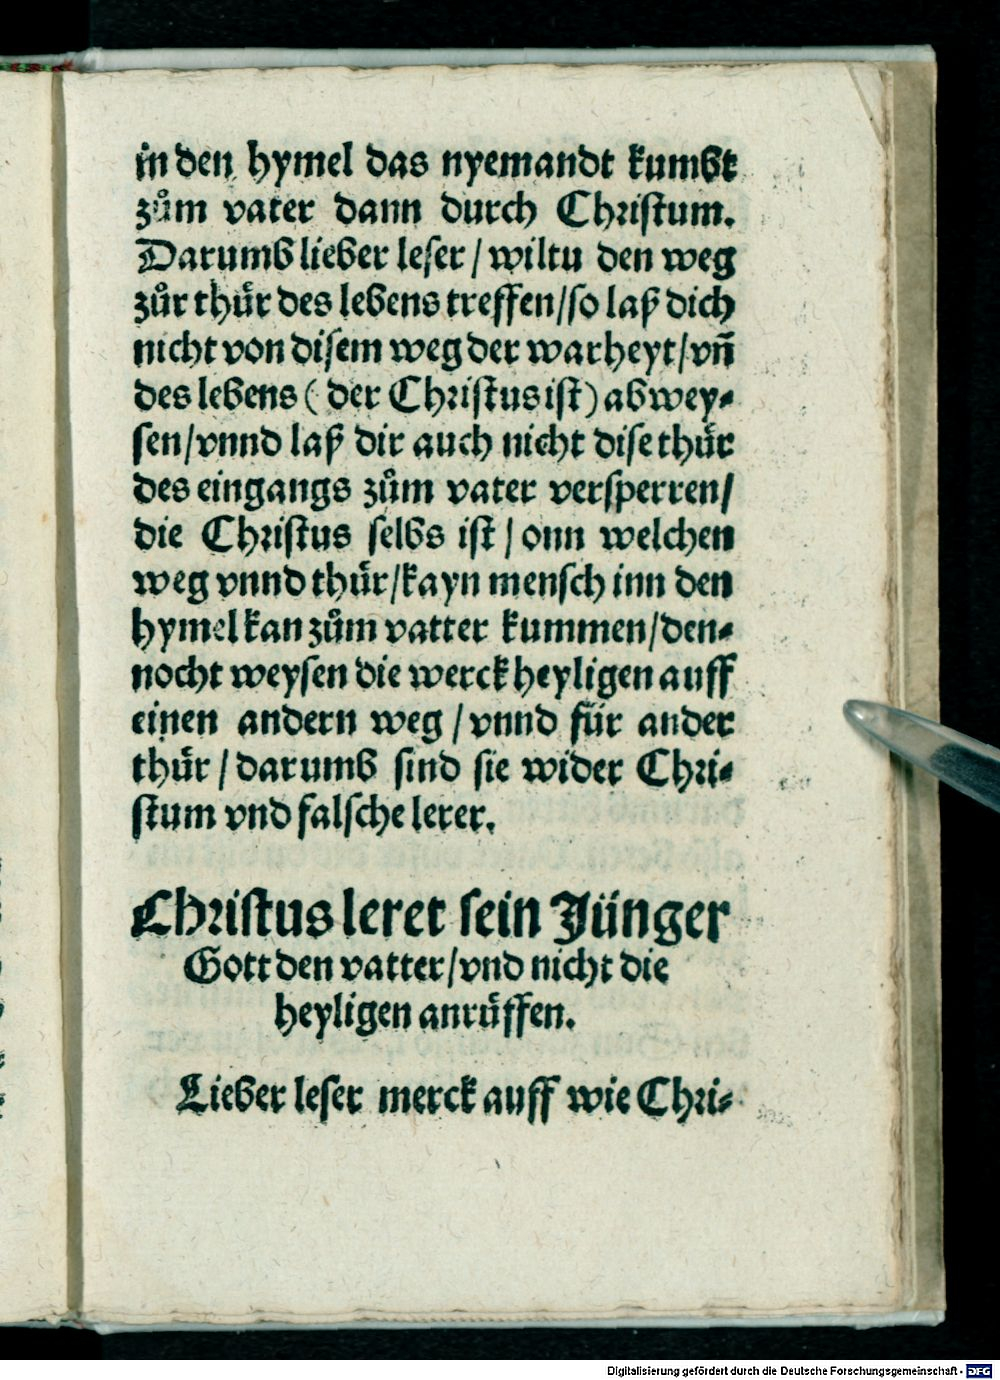 in den hymel das nyemandt kumbt
zům vater dann durch Christum.
Darumb lieber leser / wiltu den weg
zůr thůr des lebens treffen / so laß dich
nicht von disem weg der warheyt / vn̄
des lebens ( der Christus ist ) abwey⸗
sen / vnnd laß dir auch nicht dise thůr
des eingangs zům vater versperren /
die Christus selbs ist / onn welchen
weg vnnd thůr / kayn mensch inn den
hymel kan zům vatter kummen / den⸗
nocht weysen die werck heyligen auff
einen andern weg / vnnd für ander
thůr / darumb sind sie wider Chri⸗
stum vnd falsche lerer.
Christus leret sein Jünger
Gott den vatter / vnd nicht die
heyligen anrůffen.
Lieber leser merck auff wie Chri⸗
Digitalisierung gefördert durch die Deutsche Forschungsgemeinschaft - DFG